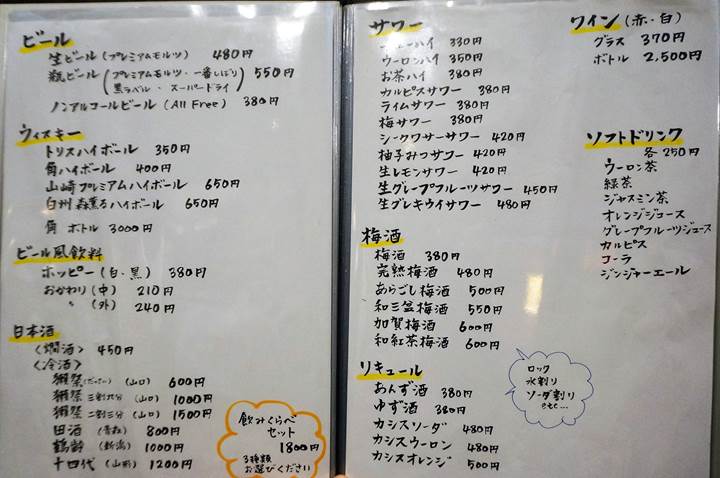 ビール
生ビール(プレミアムモルツ) 480円
瓶ビール(プレミアムモルツ・一番しぼり 黒ラベル・スーパードライ) 550円
ノンアルコールビール(All Free) 380円
ウィスキー
トリスハイボール 350円
角ハイボール 400円
山崎プレミアムハイボール 650円
白州森薫るハイボール 650円
角ボトル 3000円
ビール風飲料
ホッピー(白・黒) 380円
おかわり(中) 210円
〃 (外) 240円
日本酒
〈燗酒〉 450円
〈冷酒〉
獺祭(だっさい)(山口) 600円
獺祭 三割九分(山口) 1000円
獺祭 二割三分(山口) 1500円
田酒(青森) 800円
鶴齢(新潟) 1000円
十四代(山形) 1200円
飲みくらべ
セット
1800円
3種類
お選びください
サワー
ハイ 330円
ウーロンハイ 350円
お茶ハイ 380円
カルピスサワー 380円
ライムサワー 380円
梅サワー 380円
シークワサーサワー 420円
柚子みつサワー 420円
生レモンサワー 420円
生グレープフルーツサワー 450円
生グレキウイサワー 480円
梅酒
梅酒 380円
完熟梅酒 480円
あらごし梅酒 500円
和三盆梅酒 550円
加賀梅酒 600円
和紅茶梅酒 600円
リキュール
あんず酒 380円
ゆず酒 380円
カシスソーダ 480円
カシスウーロン 480円
カシスオレンジ 500円
ロック
水割り
ソーダ割り
etc...
ワイン(赤・白)
グラス 370円
ボトル 2,500円
ソフトドリンク
各250円
ウーロン茶
緑茶
ジャスミン茶
オレンジジュース
グレープフルーツジュース
カルピス
コーラ
ジンジャーエール